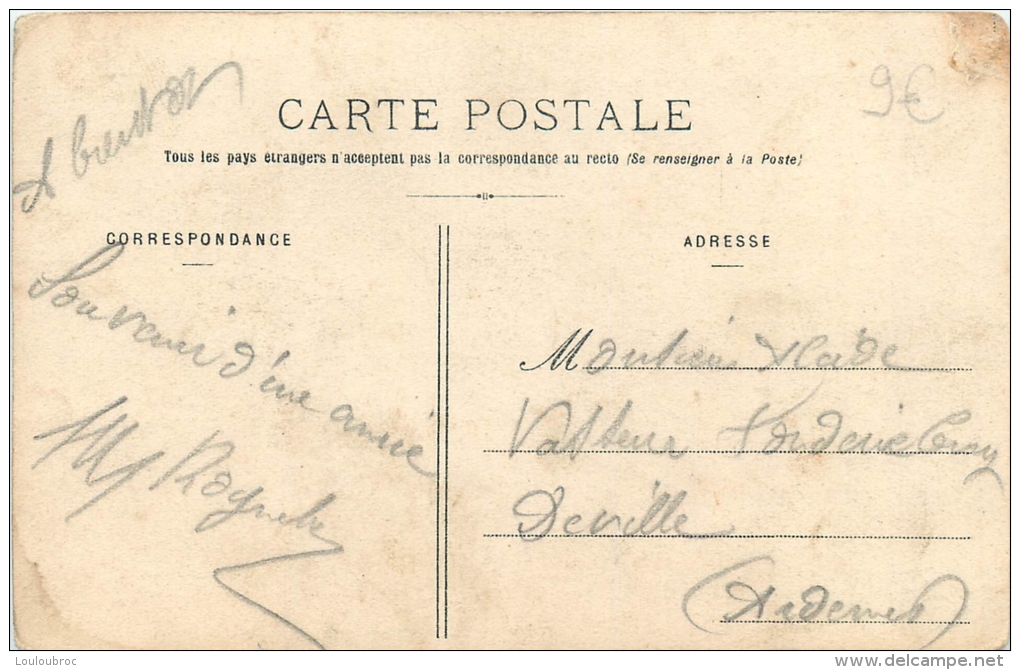 A bientot
9€
CARTE POSTALE
Tous les pays étrangers n'acceptent pas la correspondance au recto (Se renseigner à la Poste)
CORRESPONDANCE
ADRESSE
Souvenir d'une amie
Monsieur
Deville
(Ardennes)
Louloubroc
www.delcampe.net